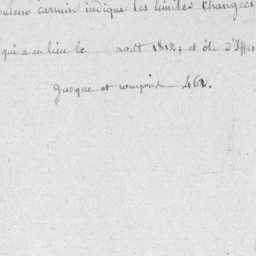 couleur carmin indique les limites changées
qui a eu lieu le août 1812, et ôté d'Offic
Jusque et compris 462.